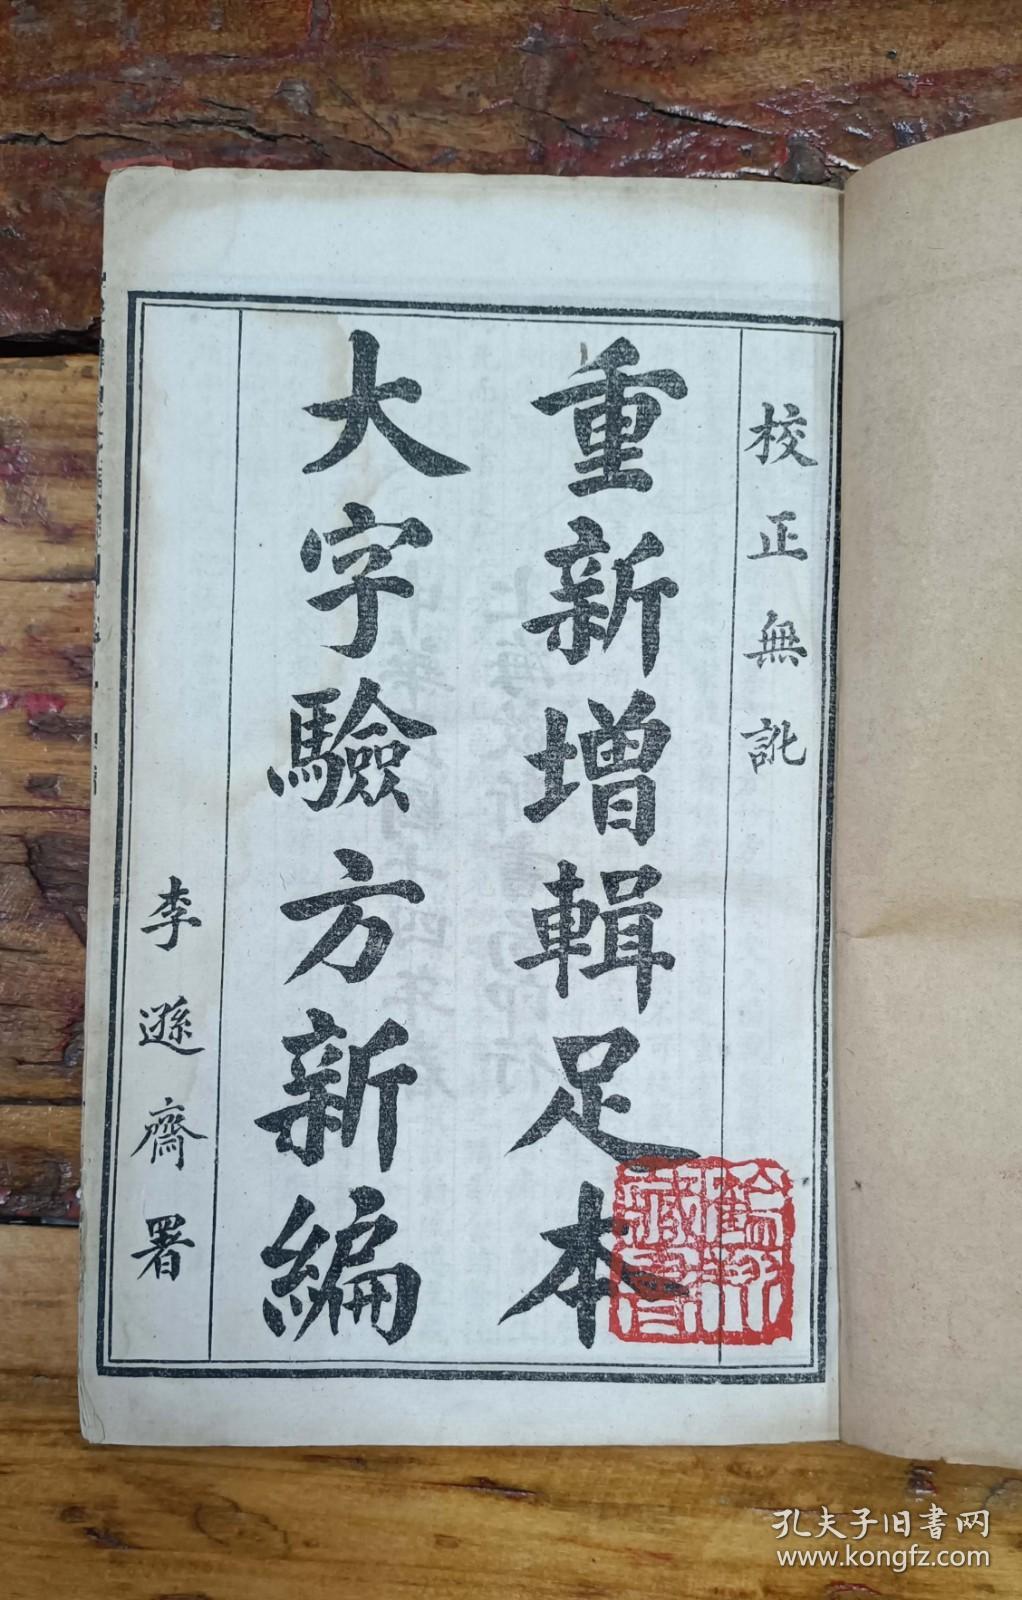 校正無訛
重新增輯足本
大字驗方新編
李遜齋署
孔夫子旧书网
www.kongfz.com